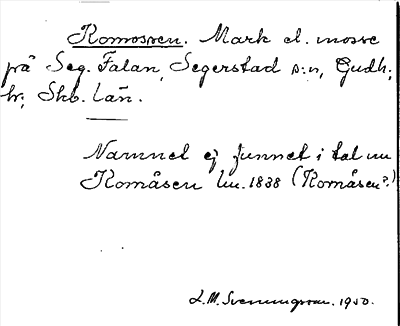 Komosren. Mark el. mosse
på Seg. Falan, Segerstad s:n, Gudh.
hr; Skb. län.
Namnet ej funnet i tal nu
Komåsen lm. 1838 (Komåsen?)
L.M. Svenungsson. 1950.